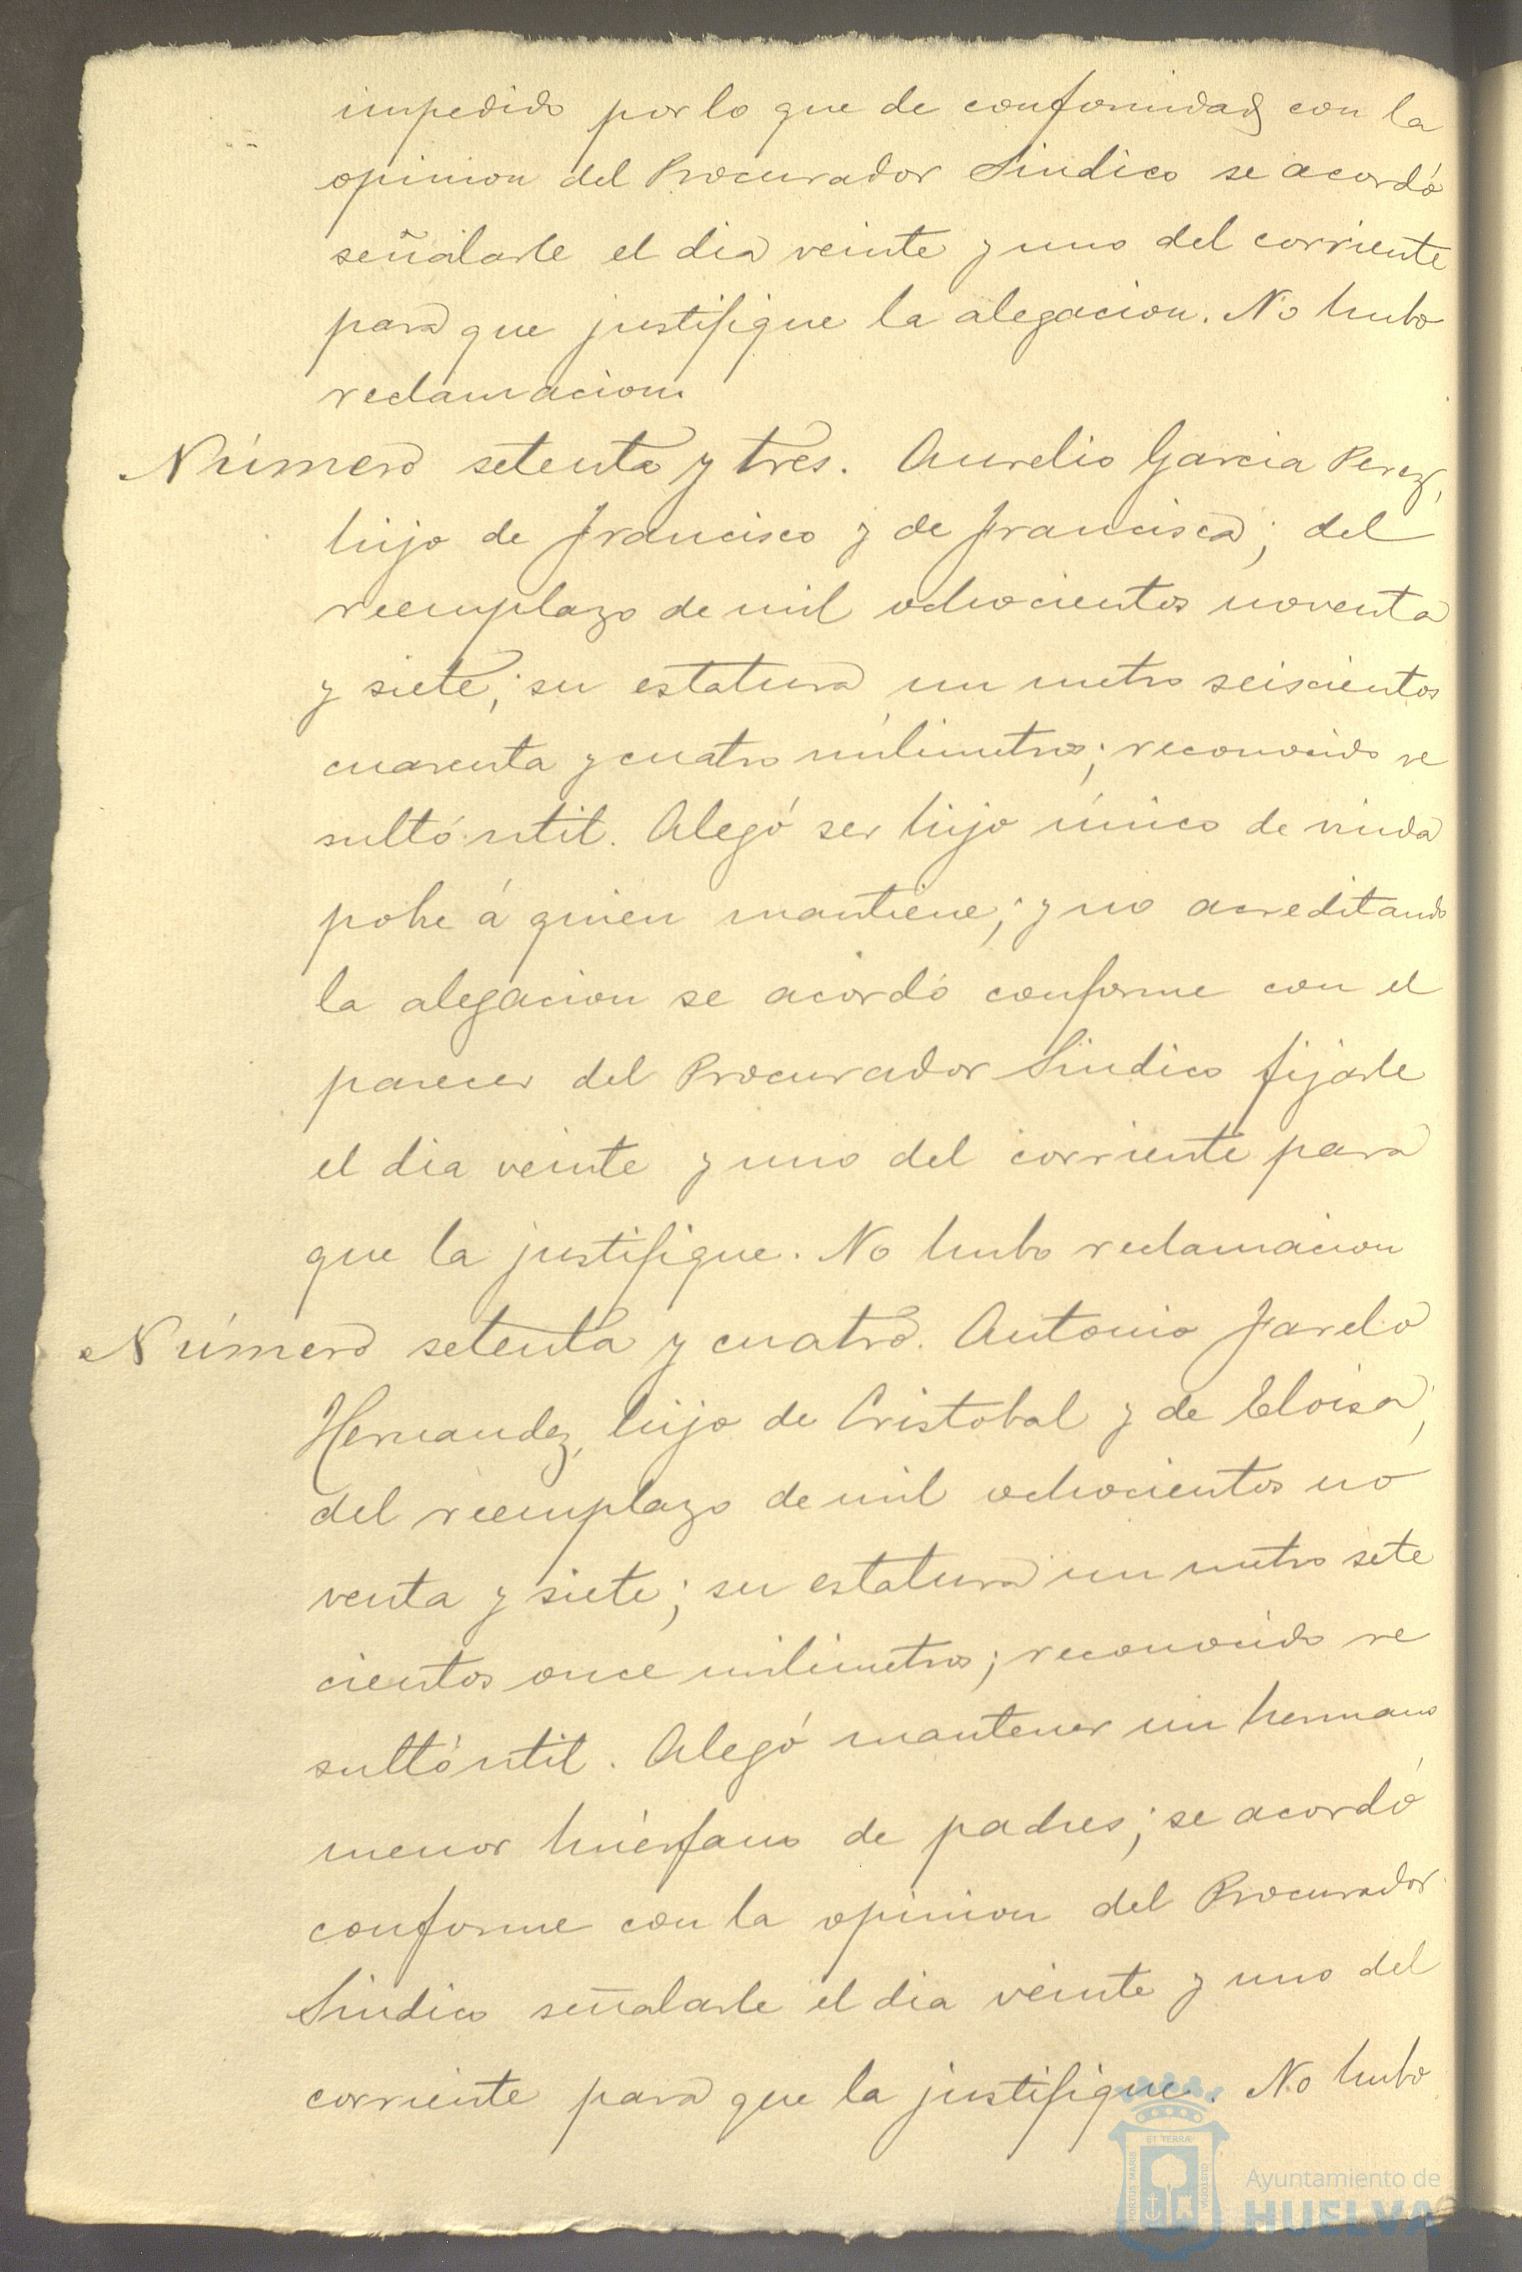 impedido por lo que de conformidad con la
opinion del Procurador Sindico se acordó
señalarle el dia veinte y uno del corriente
para que justifique la alegacion. No hubo
reclamacion.
Número setenta y tres. Aurelio Garcia Perez,
hijo de Francisco y de Francisca; del
reemplazo de mil ochocientos noventa
y siete; su estatura un metro seiscientos
cuarenta y cuatro milimetros; reconocido re
sultó útil. Alegó ser hijo único de viuda
pobre á quien mantiene; y no acreditando
la alegacion se acordó conforme con el
parecer del Procurador Sindico fijarle
el dia veinte y uno del corriente para
que la justifique. No hubo reclamacion
Número setenta y cuatro. Antonio Farelo
Hernandez, hijo de Cristobal y de Eloisa;
del reemplazo de mil ochocientos no
venta y siete; su estatura un metro sete
cientos once milimetros; reconocido re
sultó útil. Alegó mantener un hermano
menor huérfano de padres; se acordó
conforme con la opinion del Procurador
Sindico señalarle el dia veinte y uno del
corriente para que la justifique. No hubo
PORTUS MARIS ET TERRÆ CUSTODIA
Ayuntamiento de
HUELVA